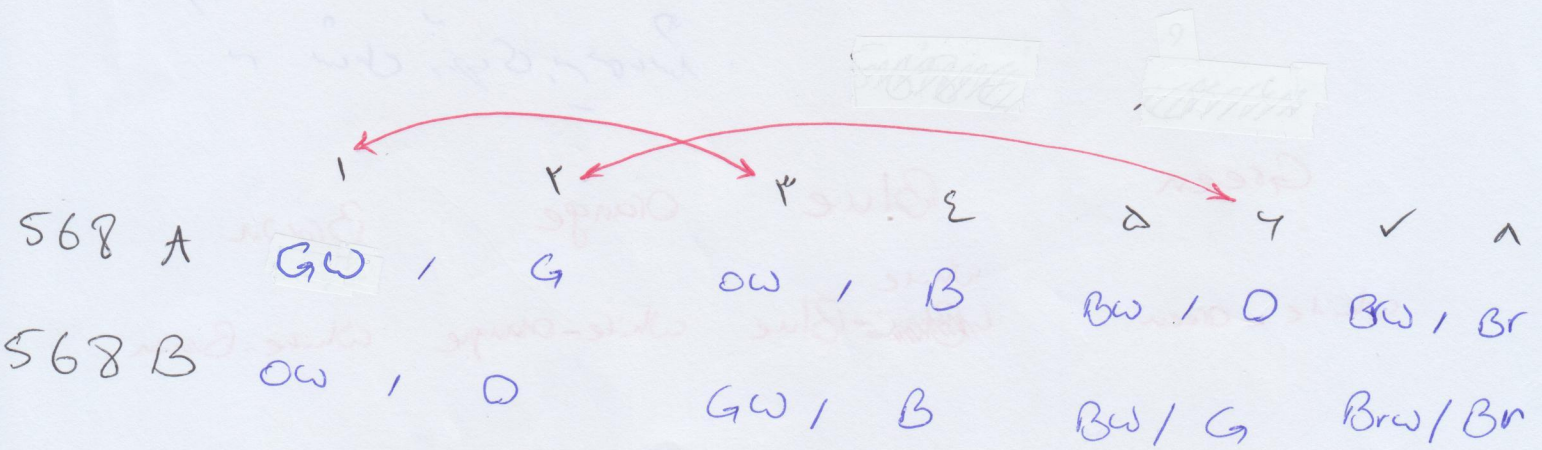 ١ ٢ ٣ ٤ ۵ ۶ ٧ ٨
568 A GW / G OW / B BW / O BrW / Br
568 B OW / O GW / B BW / G BrW / Br